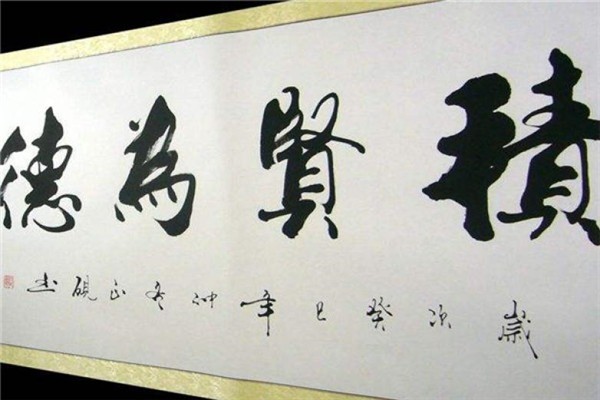 積賢為德
歲次癸巳年仲冬正硯书